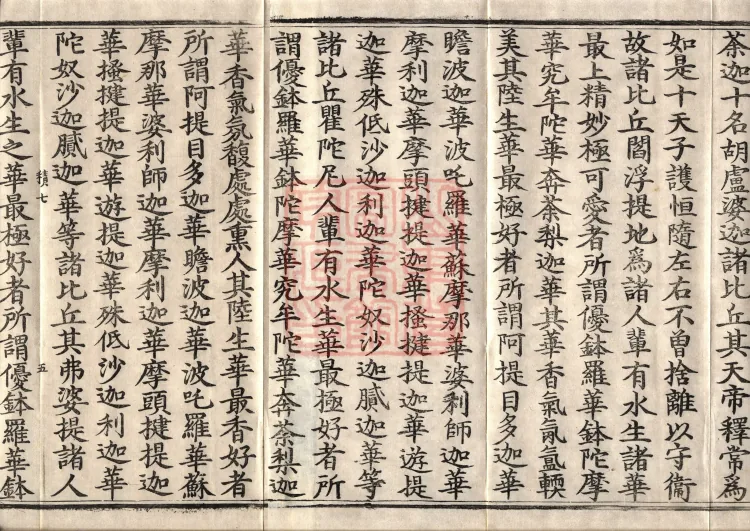 荼迦十名胡盧婆迦諸比丘其天帝釋常爲
如是十天子護恒隨左右不曾捨離以守衞
故諸比丘閻浮提地爲諸人輩有水生諸華
最上精妙極可愛者所謂優鉢羅華鉢陀摩
華究牟陀華奔荼梨迦華其華香氣氛氳輭
美其陸生華最極好者所謂阿提目多迦華
瞻波迦華波吒羅華蘇摩那華婆利師迦華
摩利迦華摩頭揵提迦華搔揵提迦華遊提
迦華殊低沙迦利迦華陀奴沙迦膩迦華等
諸比丘瞿陀尼人輩有水生華最極好者所
謂優鉢羅華鉢陀摩華究牟陀華奔荼梨迦
華香氣氛馥處處熏人其陸生華最香好者
所謂阿提目多迦華瞻波迦華波吒羅華蘇
摩那華婆利師迦華摩利迦華摩頭揵提迦
華搔揵提迦華遊提迦華殊低沙迦利迦華
陀奴沙迦膩迦華等諸比丘其弗婆提諸人
精七 五
輩有水生之華最極好者所謂優鉢羅華鉢